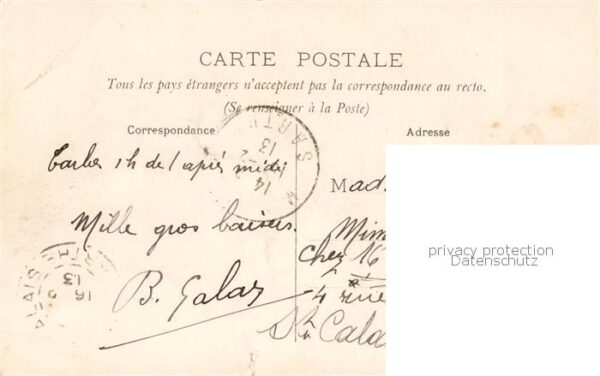 CARTE POSTALE
Tous les pays étrangers n'acceptent pas la correspondance au recto.
(Se renseigner à la Poste)
Correspondance
Adresse
Tarbes 1h de l'après midi
Mille gros baisers.
B. Galaz
SARTH
14
13
Mad
Mim
chez
4 rue
privacy protection
Datenschutz
ALAIS
13